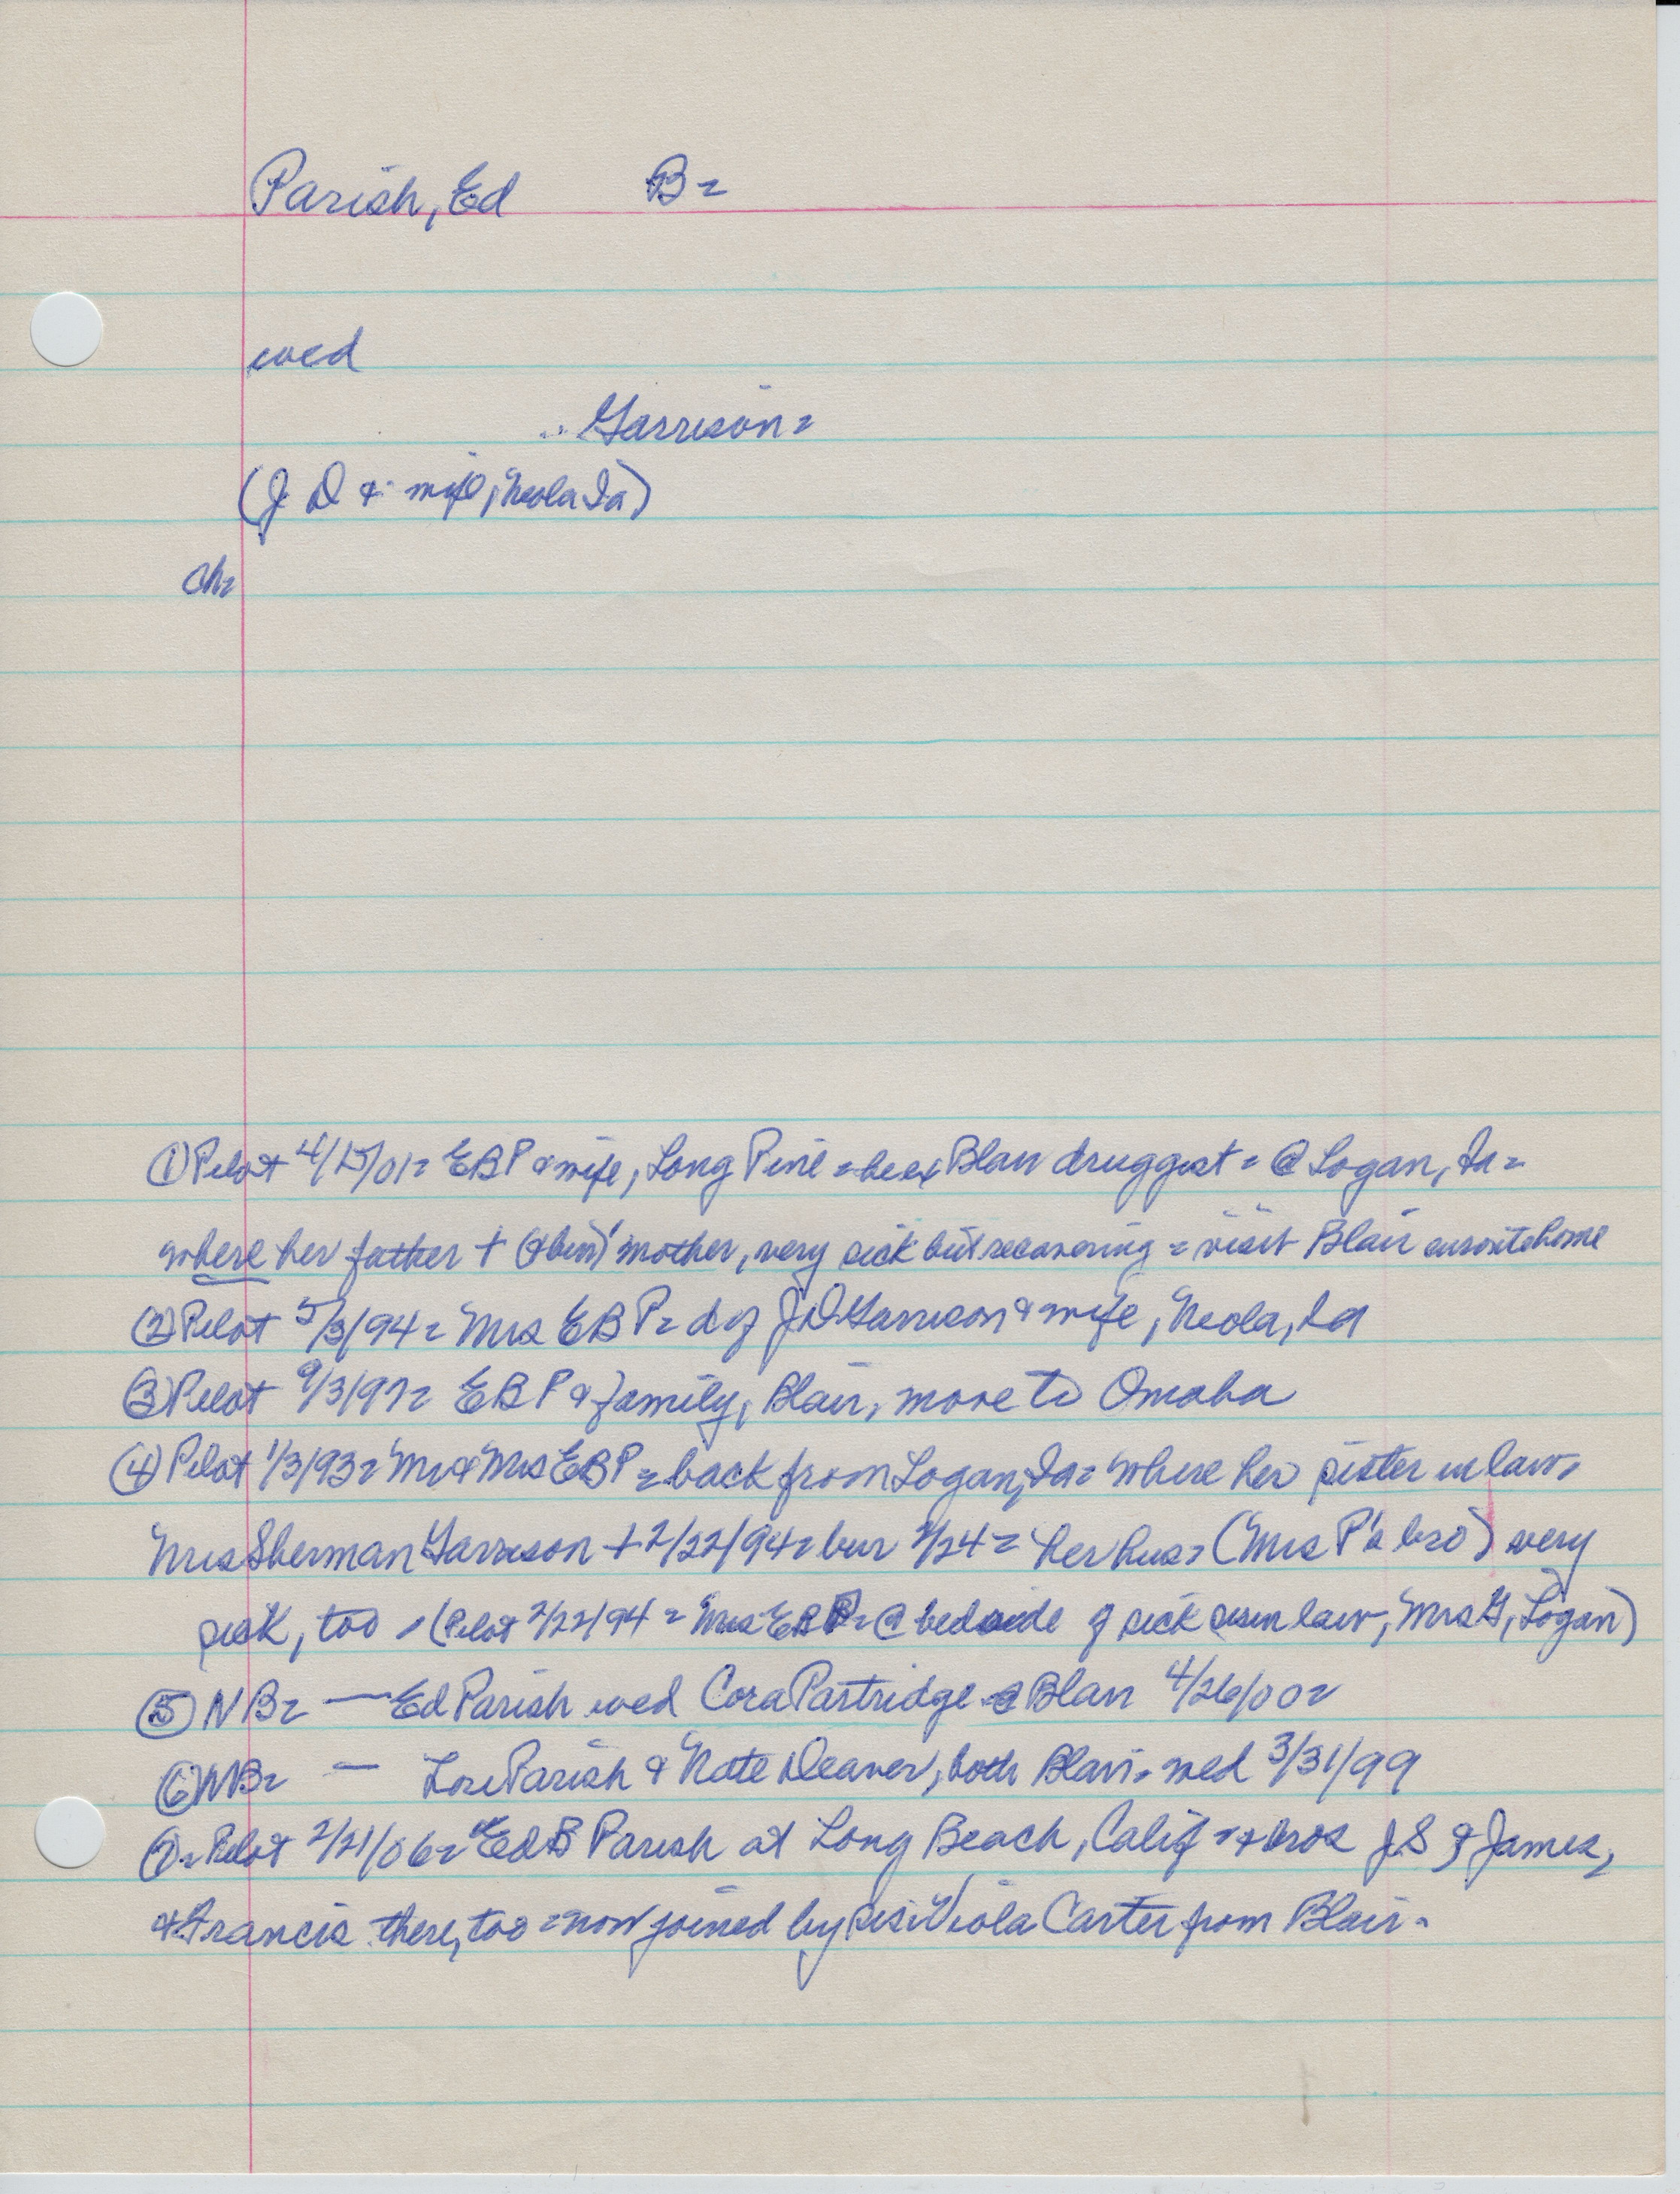 Parish, Ed B=
wed
Garrison=
(J D & wife, Neola Ia)
Ch=
① Pilot 4/15/01= EBP & wife, Long Pine = Blair druggist = @ Logan, Ia =
where her father + mother, very sick but recovering = visit Blair enroute home
② Pilot 5/3/94= Mrs EBP= d of J D Garrison & wife, Neola, Ia
③ Pilot 9/3/97= EBP & family, Blair, move to Omaha
④ Pilot 1/3/93= Mr & Mrs EBP = back from Logan, Ia= where her sister in law,
Mrs Sherman Garrison + 2/22/94= bur 2/24= her hus= (Mrs P's bro) very
sick, too (Pilot 2/22/94 = Mrs EBP= @ bedside of sick sis in law, Mrs G, Logan)
⑤ NB= — Ed Parish wed Cora Partridge @ Blair 4/26/00=
⑥ NB= — Parish & Nate Deaver, both Blair= wed 3/31/99
⑦= Pilot 2/21/06= Ed B Parish at Long Beach, Calif = & bros J S & James,
& Francis there, too = now joined by sis Viola Carter from Blair=